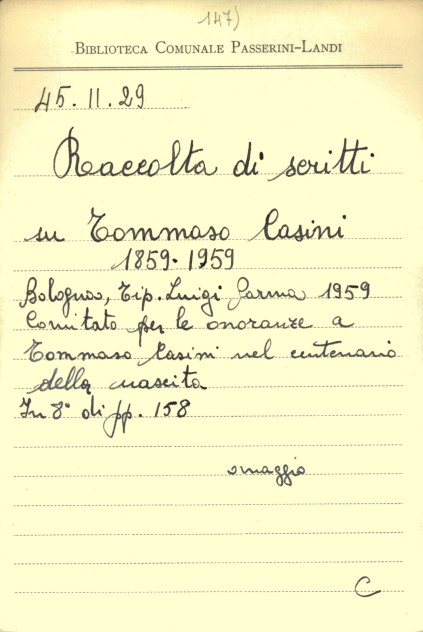 147)
BIBLIOTECA COMUNALE PASSERINI-LANDI
45.11.29
Raccolta di scritti
su Tommaso Casini
1859-1959
Bologna, Tip. Luigi Parma 1959
Comitato per le onoranze a
Tommaso Casini nel centenario
della nascita
In 8° di pp. 158
omaggio
C